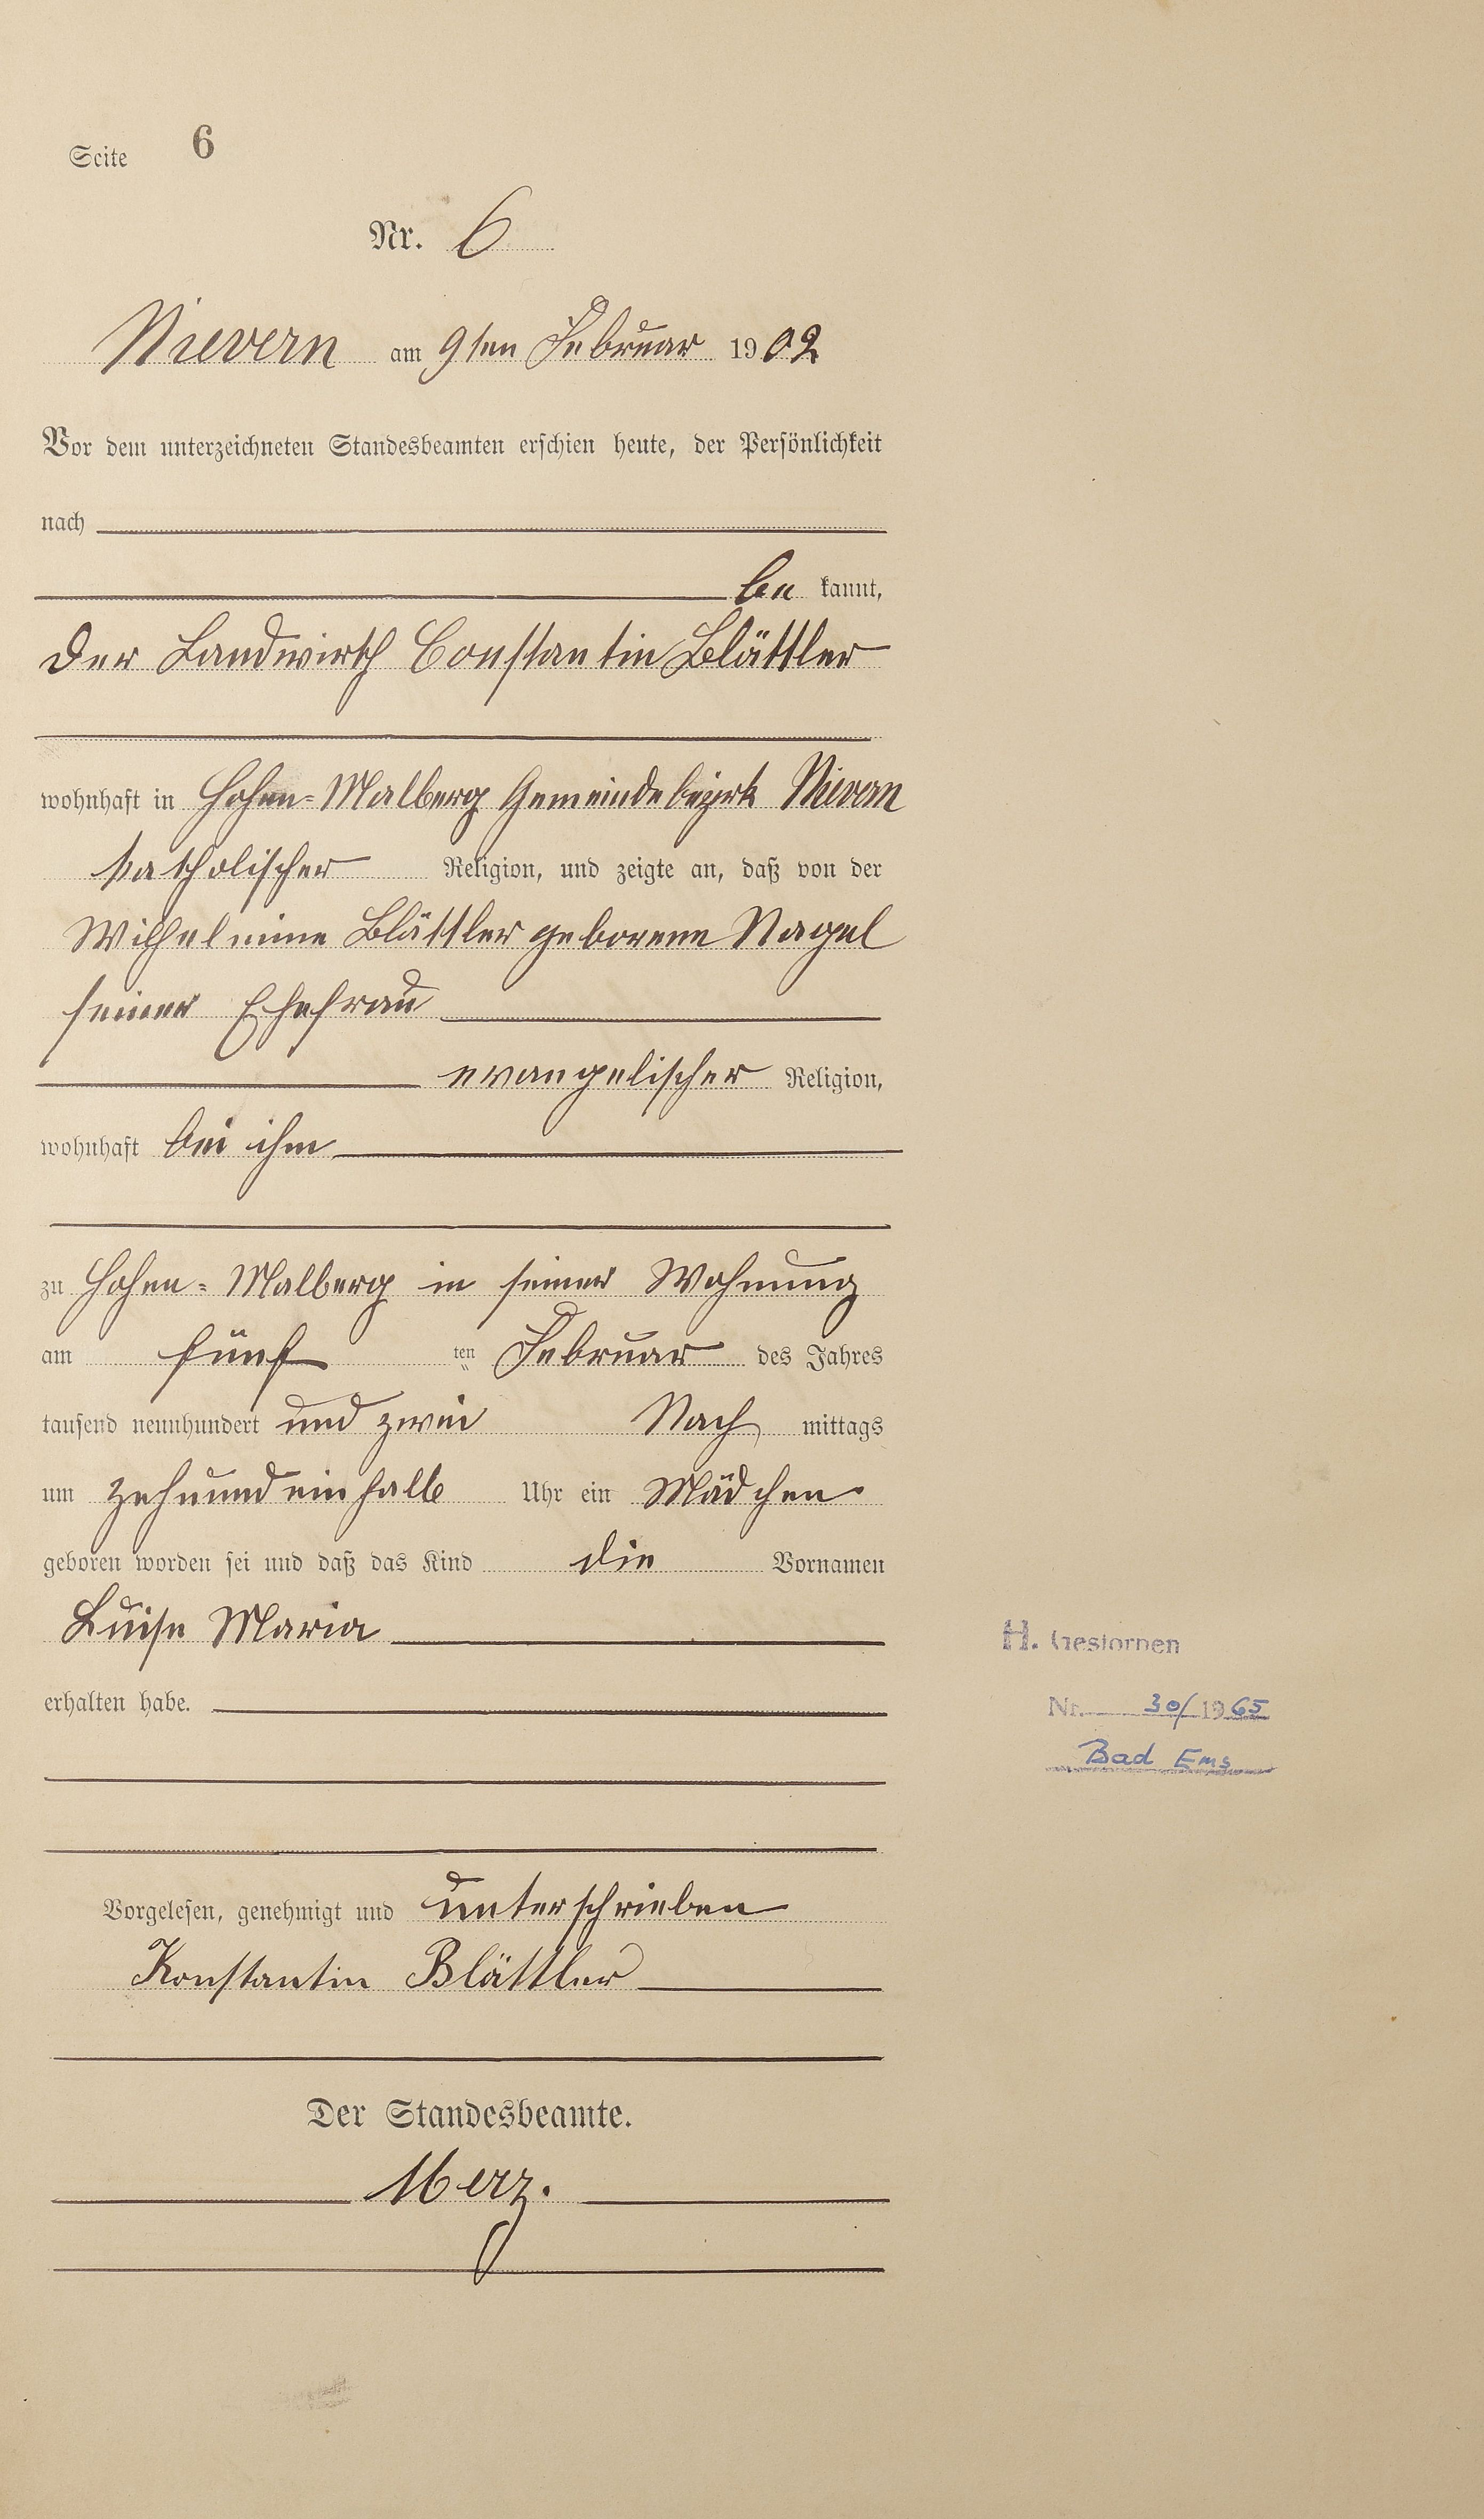 Seite 6
Nr. 6
Nievern am 9ten Februar 1902
Vor dem unterzeichneten Standesbeamten erschien heute, der Persönlichkeit
nach
be kannt,
Der Landwirth Constantin Blättler
wohnhaft in Hohen=Malberg Gemeindebezirk Nievern
katholischer Religion, und zeigte an, daß von der
Wilhelmine Blättler geborene Nagel
seiner Ehefrau
evangelischer Religion,
wohnhaft bei ihm
zu Hohen=Malberg in seiner Wohnung
am fünf ten Februar des Jahres
tausend neunhundert und zwei Nach mittags
um zehnundeinhalb Uhr ein Mädchen
geboren worden sei und daß das Kind die Vornamen
Luise Maria
erhalten habe.
H. Gestorben
Nr. 30/1965
Bad Ems
Vorgelesen, genehmigt und unterschrieben
Konstantin Blättler
Der Standesbeamte.
Merz.